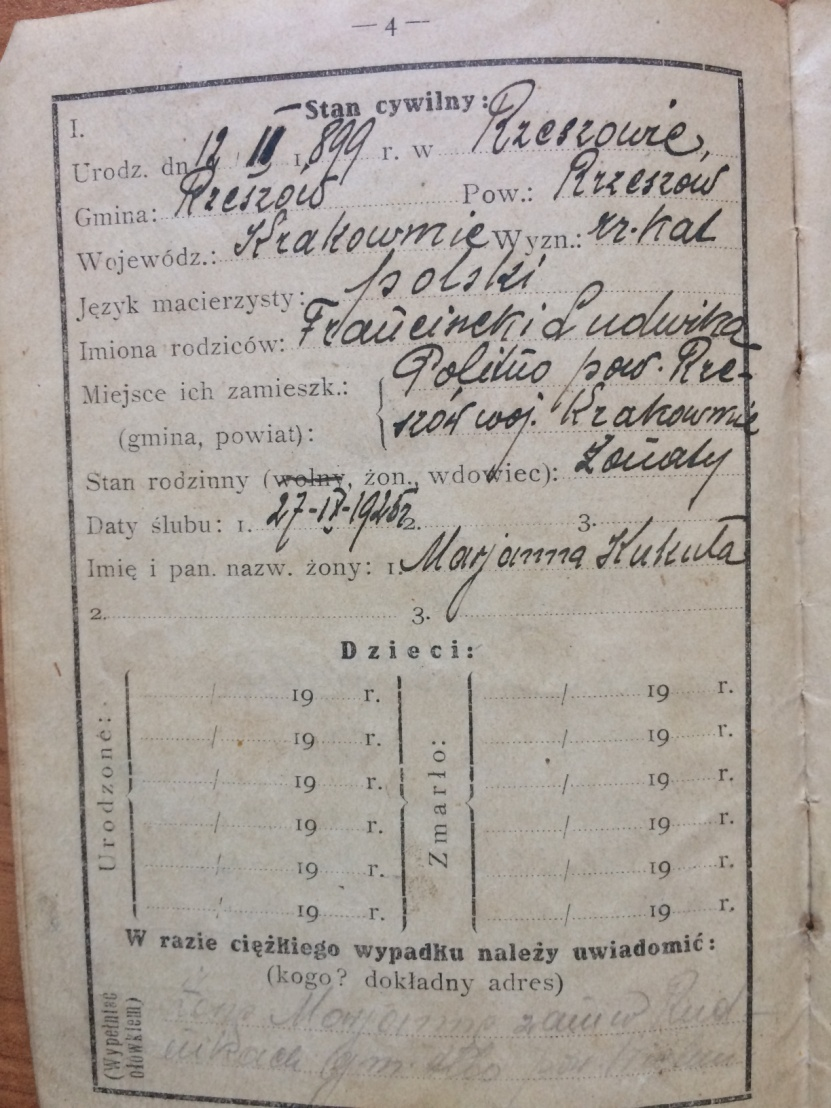 — 4 —
Stan cywilny:
I.
Urodz. dn 12 / II 1.899 r. w Rzeszowie,
Gmina: Rzeszów Pow.: Rzeszów
Wojewódz.: Krakowmie Wyzn.: rz-kat
Język macierzysty: polski
Imiona rodziców: i Ludwika
Miejsce ich zamieszk.: pow. Rze-
(gmina, powiat): szów woj. Krakowmie
Stan rodzinny (wolny, żon., wdowiec): Żonaty
Daty ślubu: 1. 27-IV-1925r 2. 3.
Imię i pan. nazw. żony: 1. Marjanna Kukuła
2. 3.
Dzieci:
Urodzone:
/ 19 r.
/ 19 r.
/ 19 r.
/ 19 r.
/ 19 r.
/ 19 r.
Zmarło:
/ 19 r.
/ 19 r.
/ 19 r.
/ 19 r.
/ 19 r.
/ 19 r.
W razie ciężkiego wypadku należy uwiadomić:
(kogo? dokładny adres)
(Wypełnić ołówkiem)
żona Marjanna zam w Rud-
nikach gm.